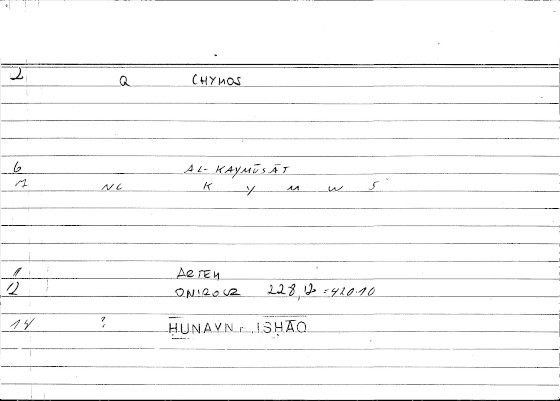 2 Q CHYMOS
6 AL-KAYMŪSĀT
NL K Y M W S
11 ARTEM
12 ONIROCR 228,12 = 420.10
14 ? HUNAYN b. ISHĀQ